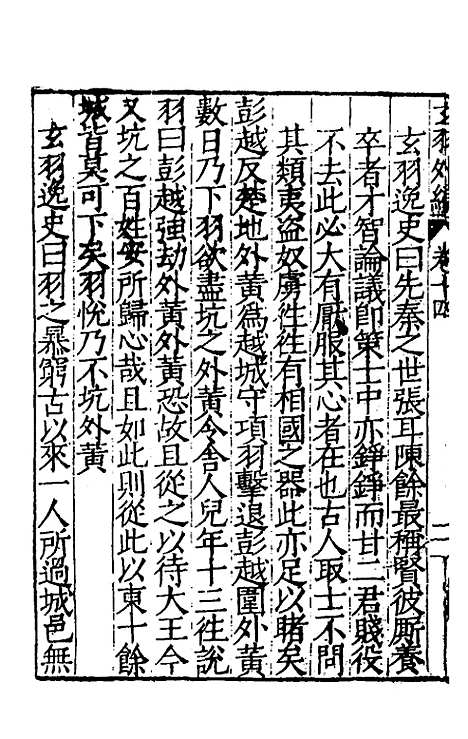 玄羽外編 卷十四
玄羽逸史曰先秦之世張耳陳餘最稱賢彼厮養
卒者才智論議即策士中亦錚錚而甘二君賤役
不去此必大有厭服其心者在也古人取士不問
其類夷盗奴虜徃徃有相國之器此亦足以睹矣
彭越反楚地外黄爲越城守項羽擊退彭越圍外黄
數日乃下羽欲盡坑之外黄令舍人兒年十三往說
羽曰彭越強劫外黄外黄恐故且從之以待大王今
又坑之百姓安所歸心哉且如此則從此以東十餘
城皆莫可下矣羽悅乃不坑外黄
玄羽逸史曰羽之暴窮古以來一人所過城邑無